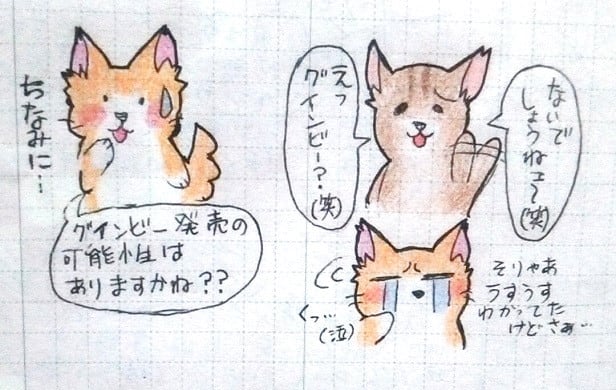 ちなみに…
グインビー発売の
可能性は
ありますかね??
えっ
グインビー?
(笑)
ないで
しょうねェ〜
(笑)
くっ…
(泣)
そりゃあ
うすうす
わかってた
けどさぁ…